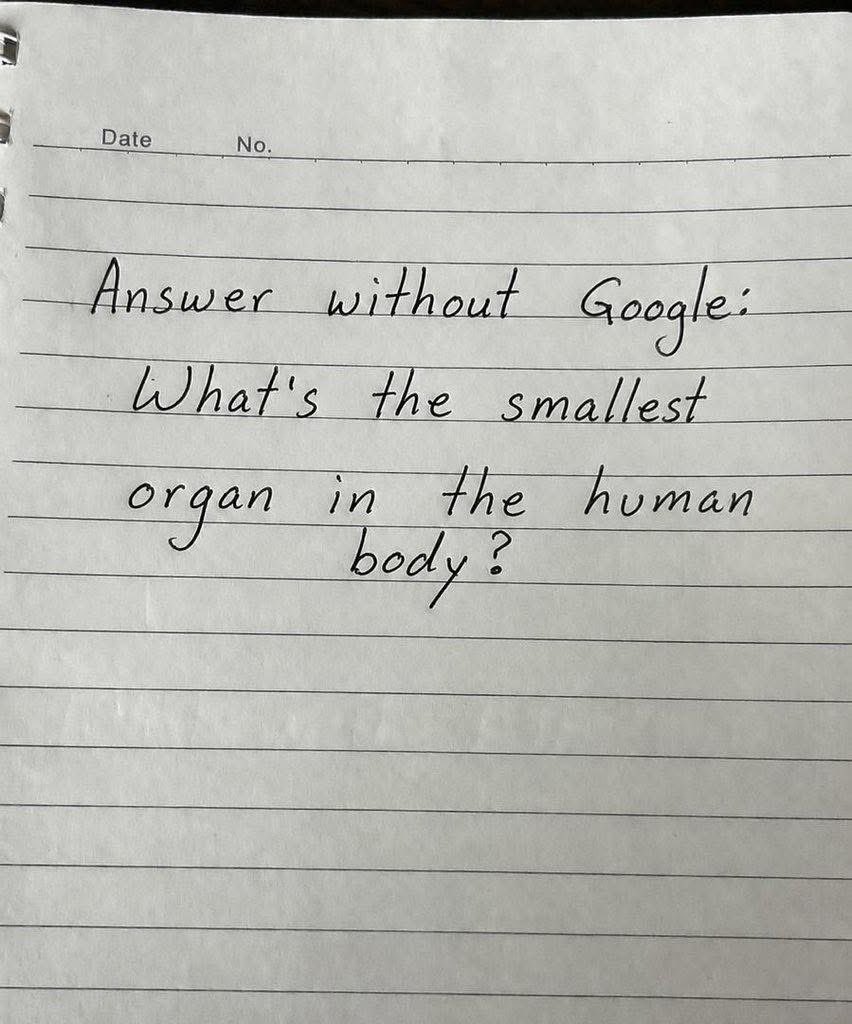 Date No.
Answer without Google:
What's the smallest
organ in the human
body?